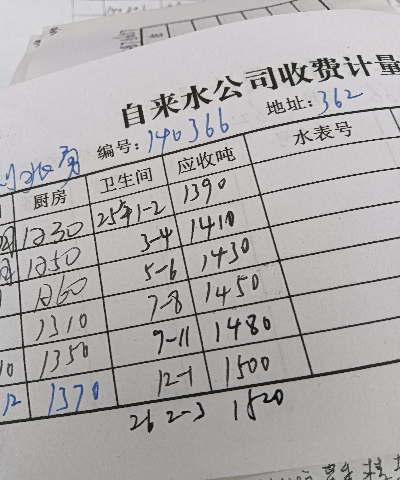 自来水公司收费计量
编号:140366 地址:362
厨房 卫生间 应收吨 水表号
1230 25年1-2 1390
1250 3-4 1410
1260 5-6 1430
1310 7-8 1450
10 1350 9-11 1480
12 1370 12-1 1500
26 2-3 1520